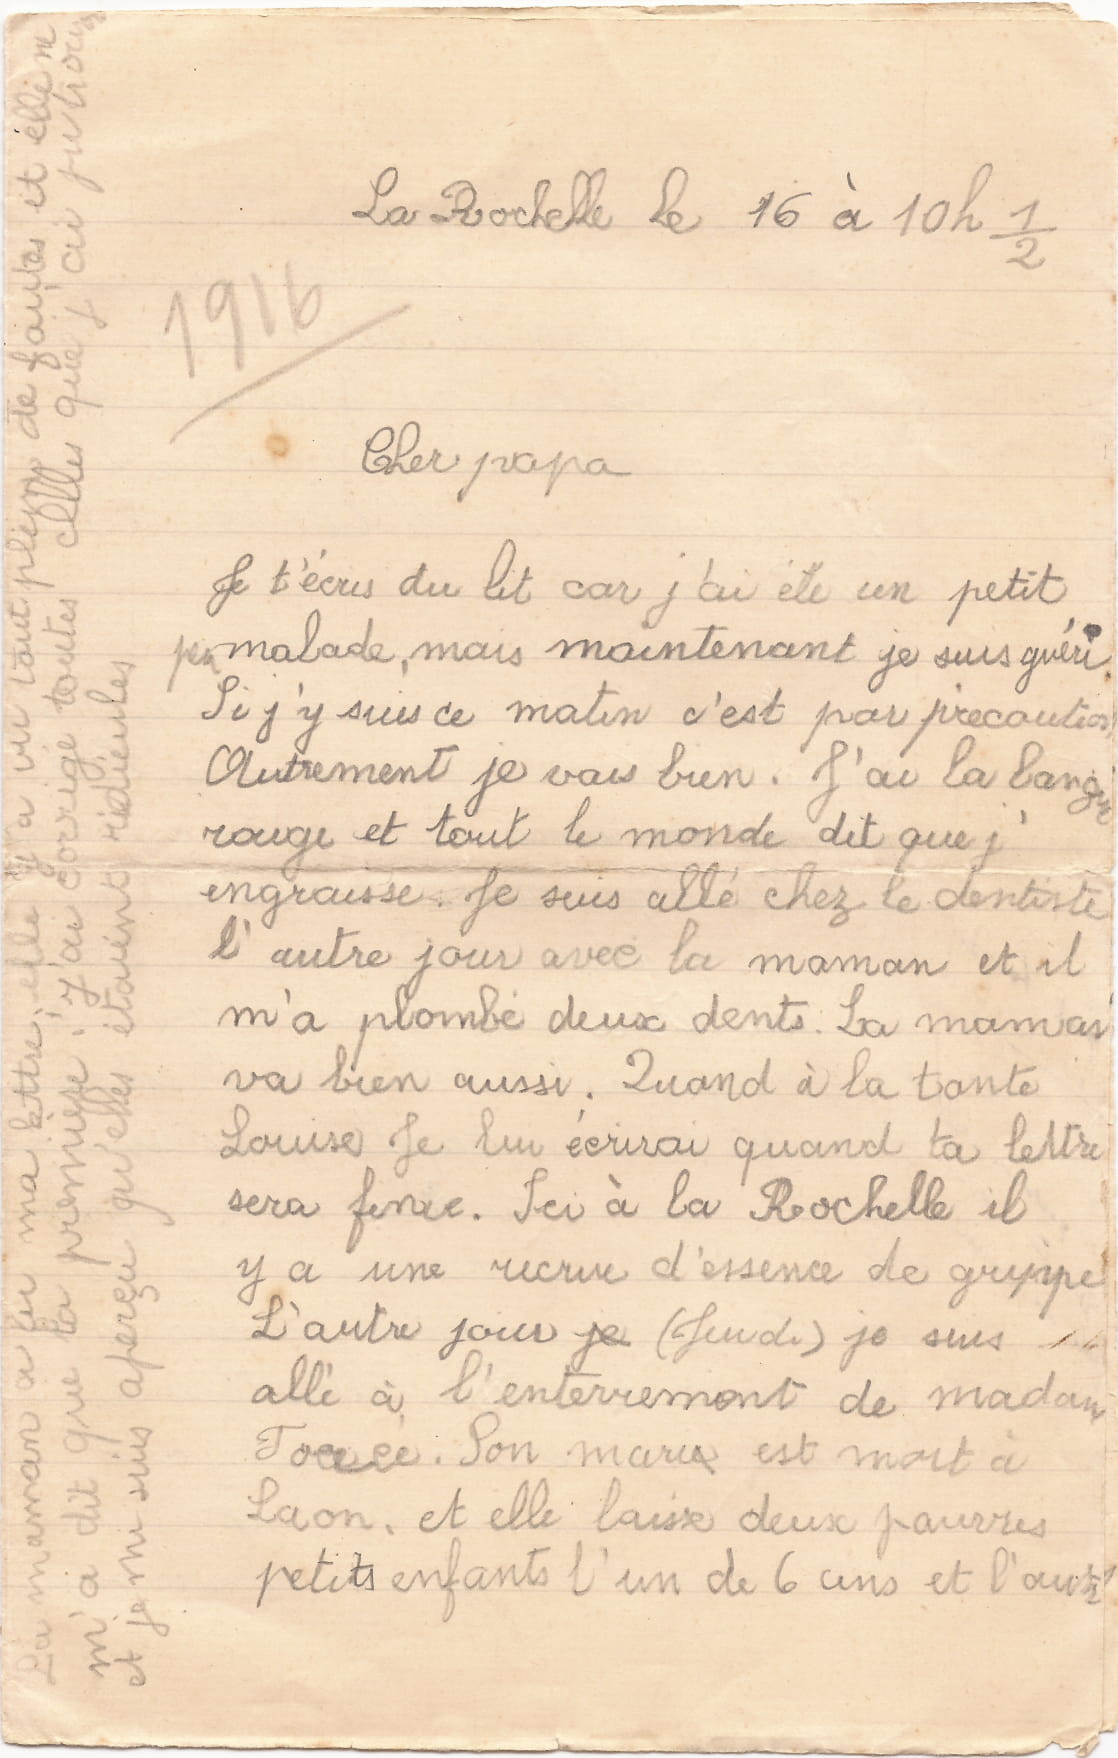 La Rochelle le 16 à 10h 1/2
1916
Cher papa
Je t'écris du lit car j'ai été un petit
peu malade, mais maintenant je suis guéri.
Si j'y suis ce matin c'est par précaution
Autrement je vais bien. J'ai la langue
rouge et tout le monde dit que j'
engraisse. Je suis allé chez le dentiste
l'autre jour avec la maman et il
m'a plombé deux dents. La maman
va bien aussi. Quand à la tante
Louise Je lui écrirai quand ta lettre
sera finie. Ici à la Rochelle il
y a une recrue d'essence de grippe
L'autre jour je (Jeudi) je suis
allé à l'enterrement de madam
Son mari est mort à
Laon, et elle laisse deux pauvres
petits enfants l'un de 6 ans et l'autre
La maman a lu ma lettre, elle y a vu tout plein de fautes et elle ne
m'a dit que la première. J'ai corrigé toutes celles que j'ai pu
et je me suis aperçu qu'elles étaient ridicules